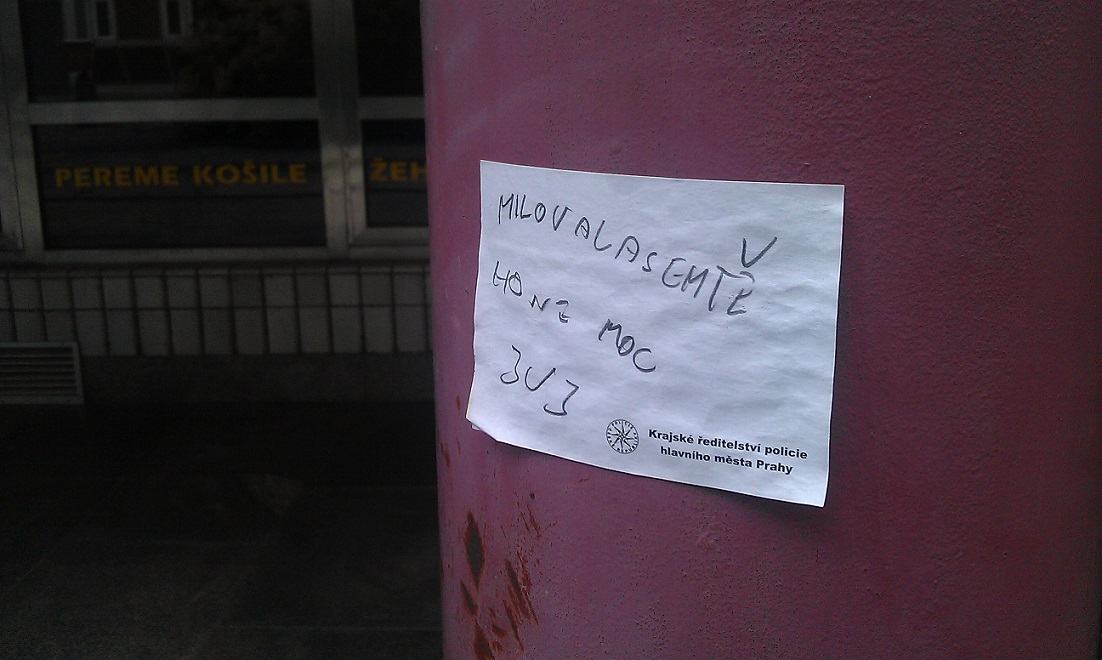 PEREME KOŠILE
ŽEH
MILOVALASEMTĚ
HONZ MOC
JVJ
Krajské ředitelství policie
hlavního města Prahy